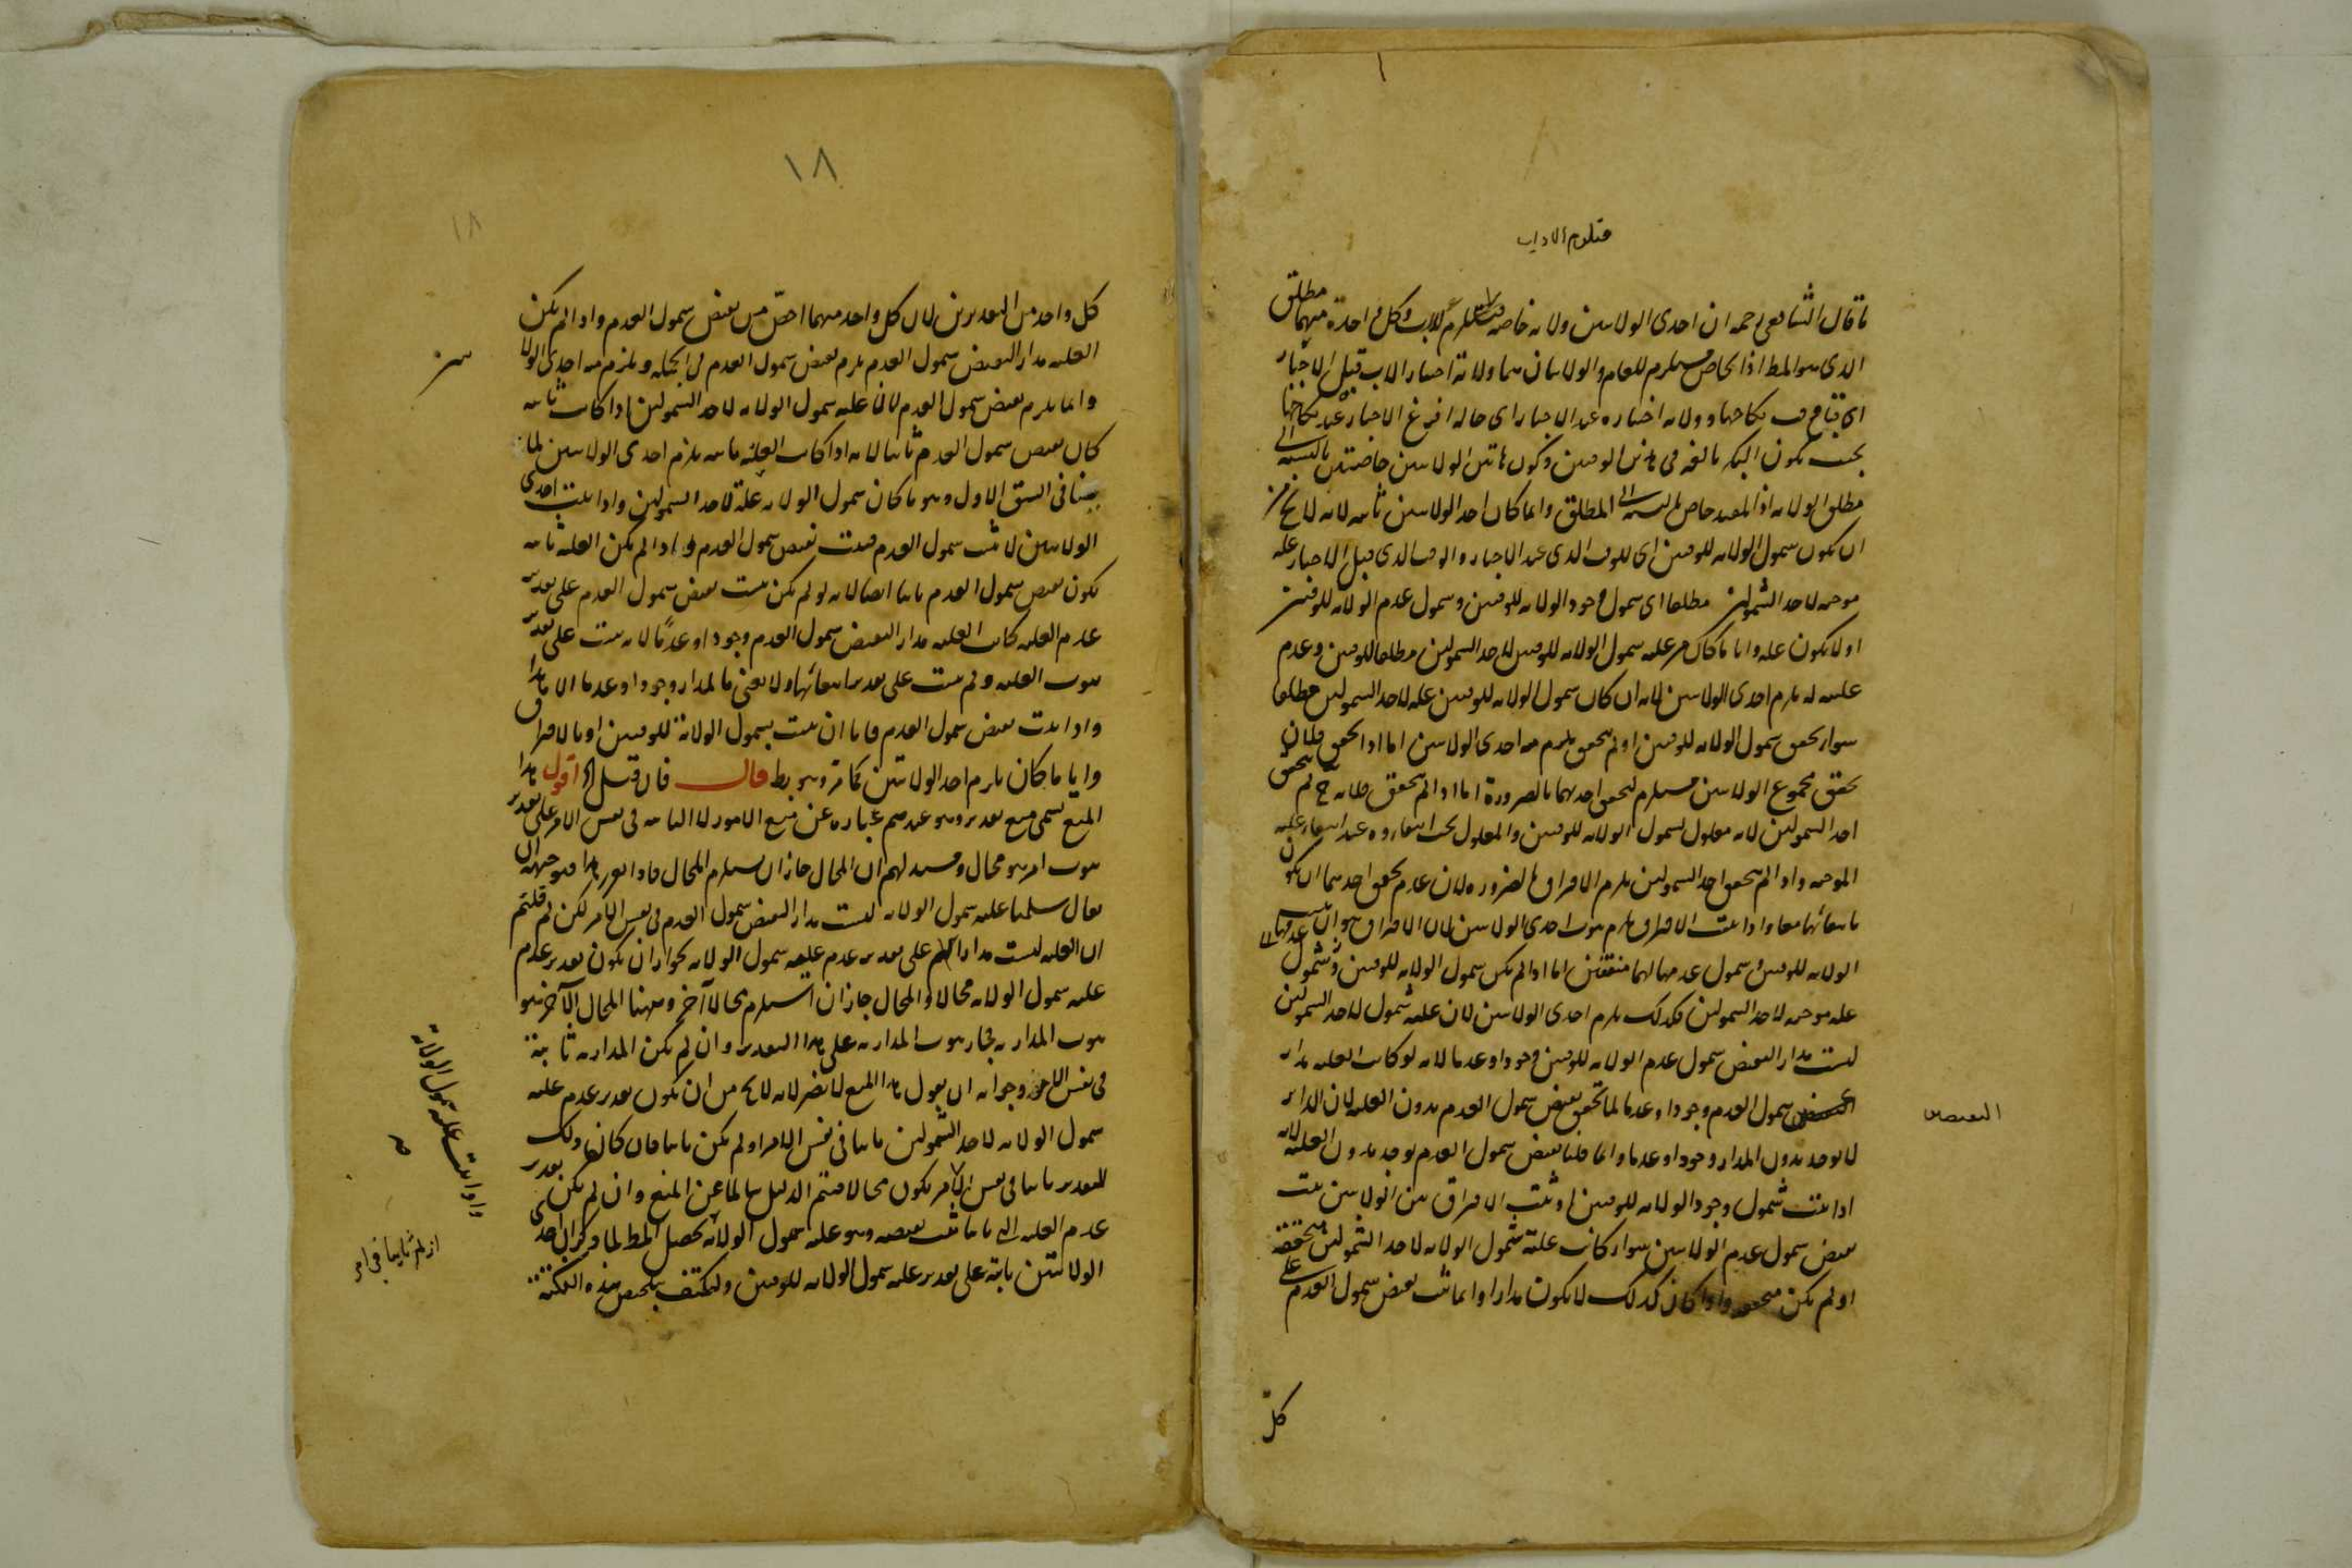 ما قال الشافعى رحمه ان احدى الولايتين ولاية خاصة للاب وكل واحدة منهما مطلق
الذى هو المط اذ الخاص مستلزم للعام والولايتان هما ولاية اجبار الاب قبل الاجبار
نكاحها وولاية اجباره عند الاجبار اى حاله افرغ الاجبار عند نكاحها
بحيث تكون البكر بالغة فى هذين الوقتين وكون هاتين الولايتين خاصتين بالنسبة الى
مطلق الولاية اذ المقيد خاص بالنسبة الى المطلق وانما كان احد الولايتين ثابتة لانه لا يخ من
ان يكون شمول الولاية للوقتين اى للوقت الذى عند الاجبار والوقت الذى قبل الاجبار علة
موجبة لاحد الشمولين مطلقا اى شمول وجود الولاية للوقتين وشمول عدم الولاية للوقتين
او لا يكون علة وايا ما كان من علية شمول الولاية للوقتين لاحد الشمولين مطلقا للوقتين وعدم
عليته له يلزم احدى الولايتين لانه ان كان شمول الولاية للوقتين علة لاحد الشمولين مطلقا
سواء تحقق شمول الولاية للوقتين او لم يتحقق يلزم منه احدى الولايتين اما اذا تحقق فلان
تحقق مجموع الولايتين مستلزم لتحقق احدهما بالضرورة اما اذا لم يتحقق فلانه ح لم يتحقق
احد الشمولين لانه معلول لشمول الولاية للوقتين والمعلول يجب انتفاؤه عند انتفاء علته
الموجبة واذا لم يتحقق احد الشمولين يلزم الافتراق بالضرورة لان عدم تحقق احدهما ان يكون
بانتفائهما معا واذا ثبت الافتراق يلزم ثبوت احدى الولايتين لان الافتراق هو ان
الولاية للوقتين وشمول عدمها لهما منتفيين اما اذا لم يكن شمول الولاية للوقتين وشمول
علة موجبة لاحد الشمولين فكذلك يلزم احدى الولايتين لان علية شمول لاحد الشمولين
ليست مدار النقيض شمول عدم الولاية للوقتين وجودا وعدما لانه لو كانت العلية مدار
شمول العدم وجودا وعدما لما تحقق نقيض شمول العدم بدون العلية لان الدائر
لا يوجد بدون المدار وجودا وعدما وانما قلنا نقيض شمول العدم يوجد بدون العلية لانه
اذا ثبت شمول وجود الولاية للوقتين او ثبت الافتراق بين الولايتين ثبت
نقيض شمول عدم الولايتين سواء كانت علية شمول الولاية لاحد الشمولين متحققة
او لم يكن متحققة واذا كان كذلك لا يكون مدارا وانما ثبت نقيض شمول العدم على
كل
النقيض
١٨
١٨
كل واحد من التقديرين لان كل واحد منهما اخص من نقيض شمول العدم واذا لم يكن
العلية مدار النقيض شمول العدم يلزم نقيض شمول العدم فى الجملة ويلزم منه احدى الولا
وانما يلزم نقيض شمول العدم لان علية شمول الولاية لاحد الشمولين اذا كانت ثابتة
كان نقيض شمول العدم ثابتا لانه اذا كانت العلية ثابتة يلزم احدى الولايتين لما
بينا فى الشق الاول وهو ما كان شمول الولاية علة لاحد الشمولين واذا ثبت احدى
الولايتين لا يثبت شمول العدم فيثبت نقيض شمول العدم واذا لم يكن العلية ثابتة
يكون نقيض شمول العدم ثابتا ايضا لانه لو لم يكن يثبت نقيض شمول العدم على تقدير
عدم العلية كانت العلية مدار النقيض شمول العدم وجودا وعدما لانه يثبت على تقدير
ثبوت العلية ولم يثبت على تقدير انتفائها ولا نعنى بالمدار وجودا وعدما الا هذا
واذا ثبت نقيض شمول العدم فاما ان يثبت بشمول الولاية للوقتين او بالافتراق
وايا ما كان يلزم احد الولايتين كما مر وهو بط قال فان قيل اه اقول هذا
المنع يسمى منع تقدير وهو عندهم عبارة عن منع الامور الثابتة فى نفس الامر على تقدير
ثبوت امر هو محال وسند لهم ان المحال جاز ان يستلزم المحال فاذا تقرر هذا فتوجيهه ان
يقال سلمنا علية شمول الولاية ليست مدار النقيض شمول العدم فى نفس الامر لكن لم قلتم
ان العلية ليست مدارا لهم على تقدير عدم علية شمول الولاية لجواز ان يكون تقدير عدم
علية شمول الولاية محالا والمحال جاز ان يستلزم محالا آخر وههنا المحال الآخر هو
ثبوت المدارية فجاز ثبوت المدارية على هذا التقدير وان لم يكن المدارية ثابتة
فى نفس الامر وجوابه ان يقول هذا المنع لا يضر لانه لا يخ من ان يكون تقدير عدم علية
شمول الولاية لاحد الشمولين ثابتا فى نفس الامر او لم يكن ثابتا فان كان ذلك
التقدير ثابتا فى نفس الامر يكون محالا فيتم الدليل سالما عن المنع وان لم يكن تقدير
عدم العلية ثابتا يثبت نقيضه وهو علية شمول الولاية يحصل المط لما مر ان احدى
الولايتين ثابتة على تقدير علية شمول الولاية للوقتين ولنكتف بتلخيص هذه النكتة
واذا ثبت علية شمول الولاية